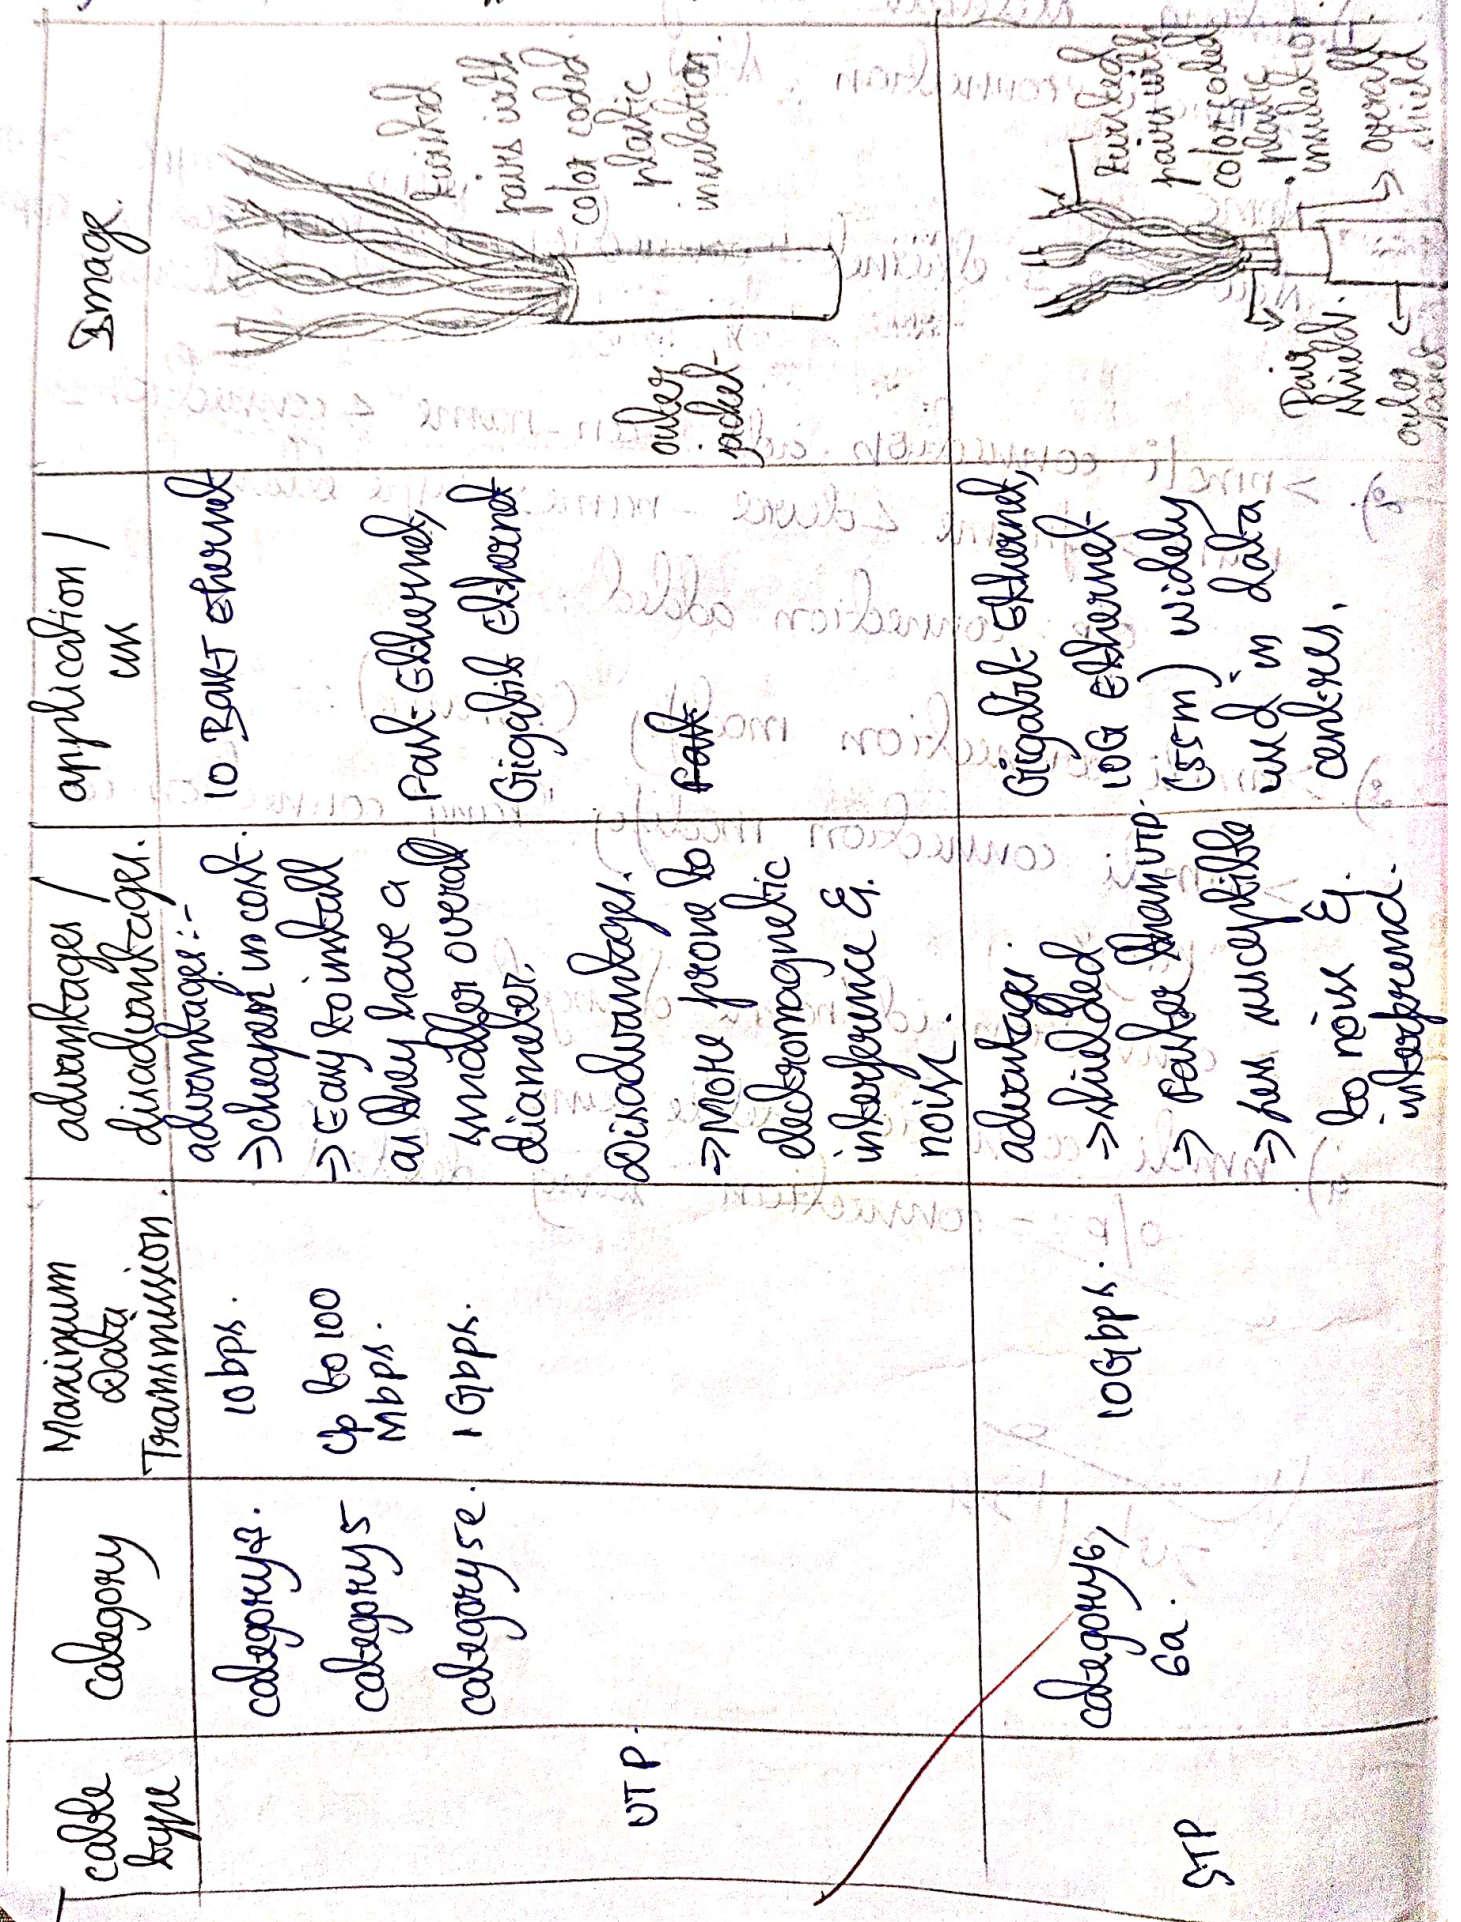 cable
type
category
Maximum
Data
Transmission.
advantages /
disadvantages.
application /
use
Image.
UTP.
category
category 5
category 5e.
10bps.
Up to 100
Mbps.
1Gbps.
advantages:-
→ cheaper in cost.
→ Easy to install
as they have a
smaller overall
diameter.
Disadvantages.
→ More prone to
electromagnetic
interference &
noise.
10 BASE T Ethernet
Fast Ethernet,
Gigabit Ethernet
Fast
twisted
pairs with
color coded
plastic
insulation
outer
jacket
STP
category 6,
6a.
10Gbps.
advantages.
→ shielded
→ Faster than UTP.
→ less susceptible
to noise &
interference.
Gigabit Ethernet,
10G Ethernet
(55m) widely
used in data
centres.
twisted
pairs with
color coded
plastic
insulation
→ overall
shield
Pair
shield.
outer
jacket